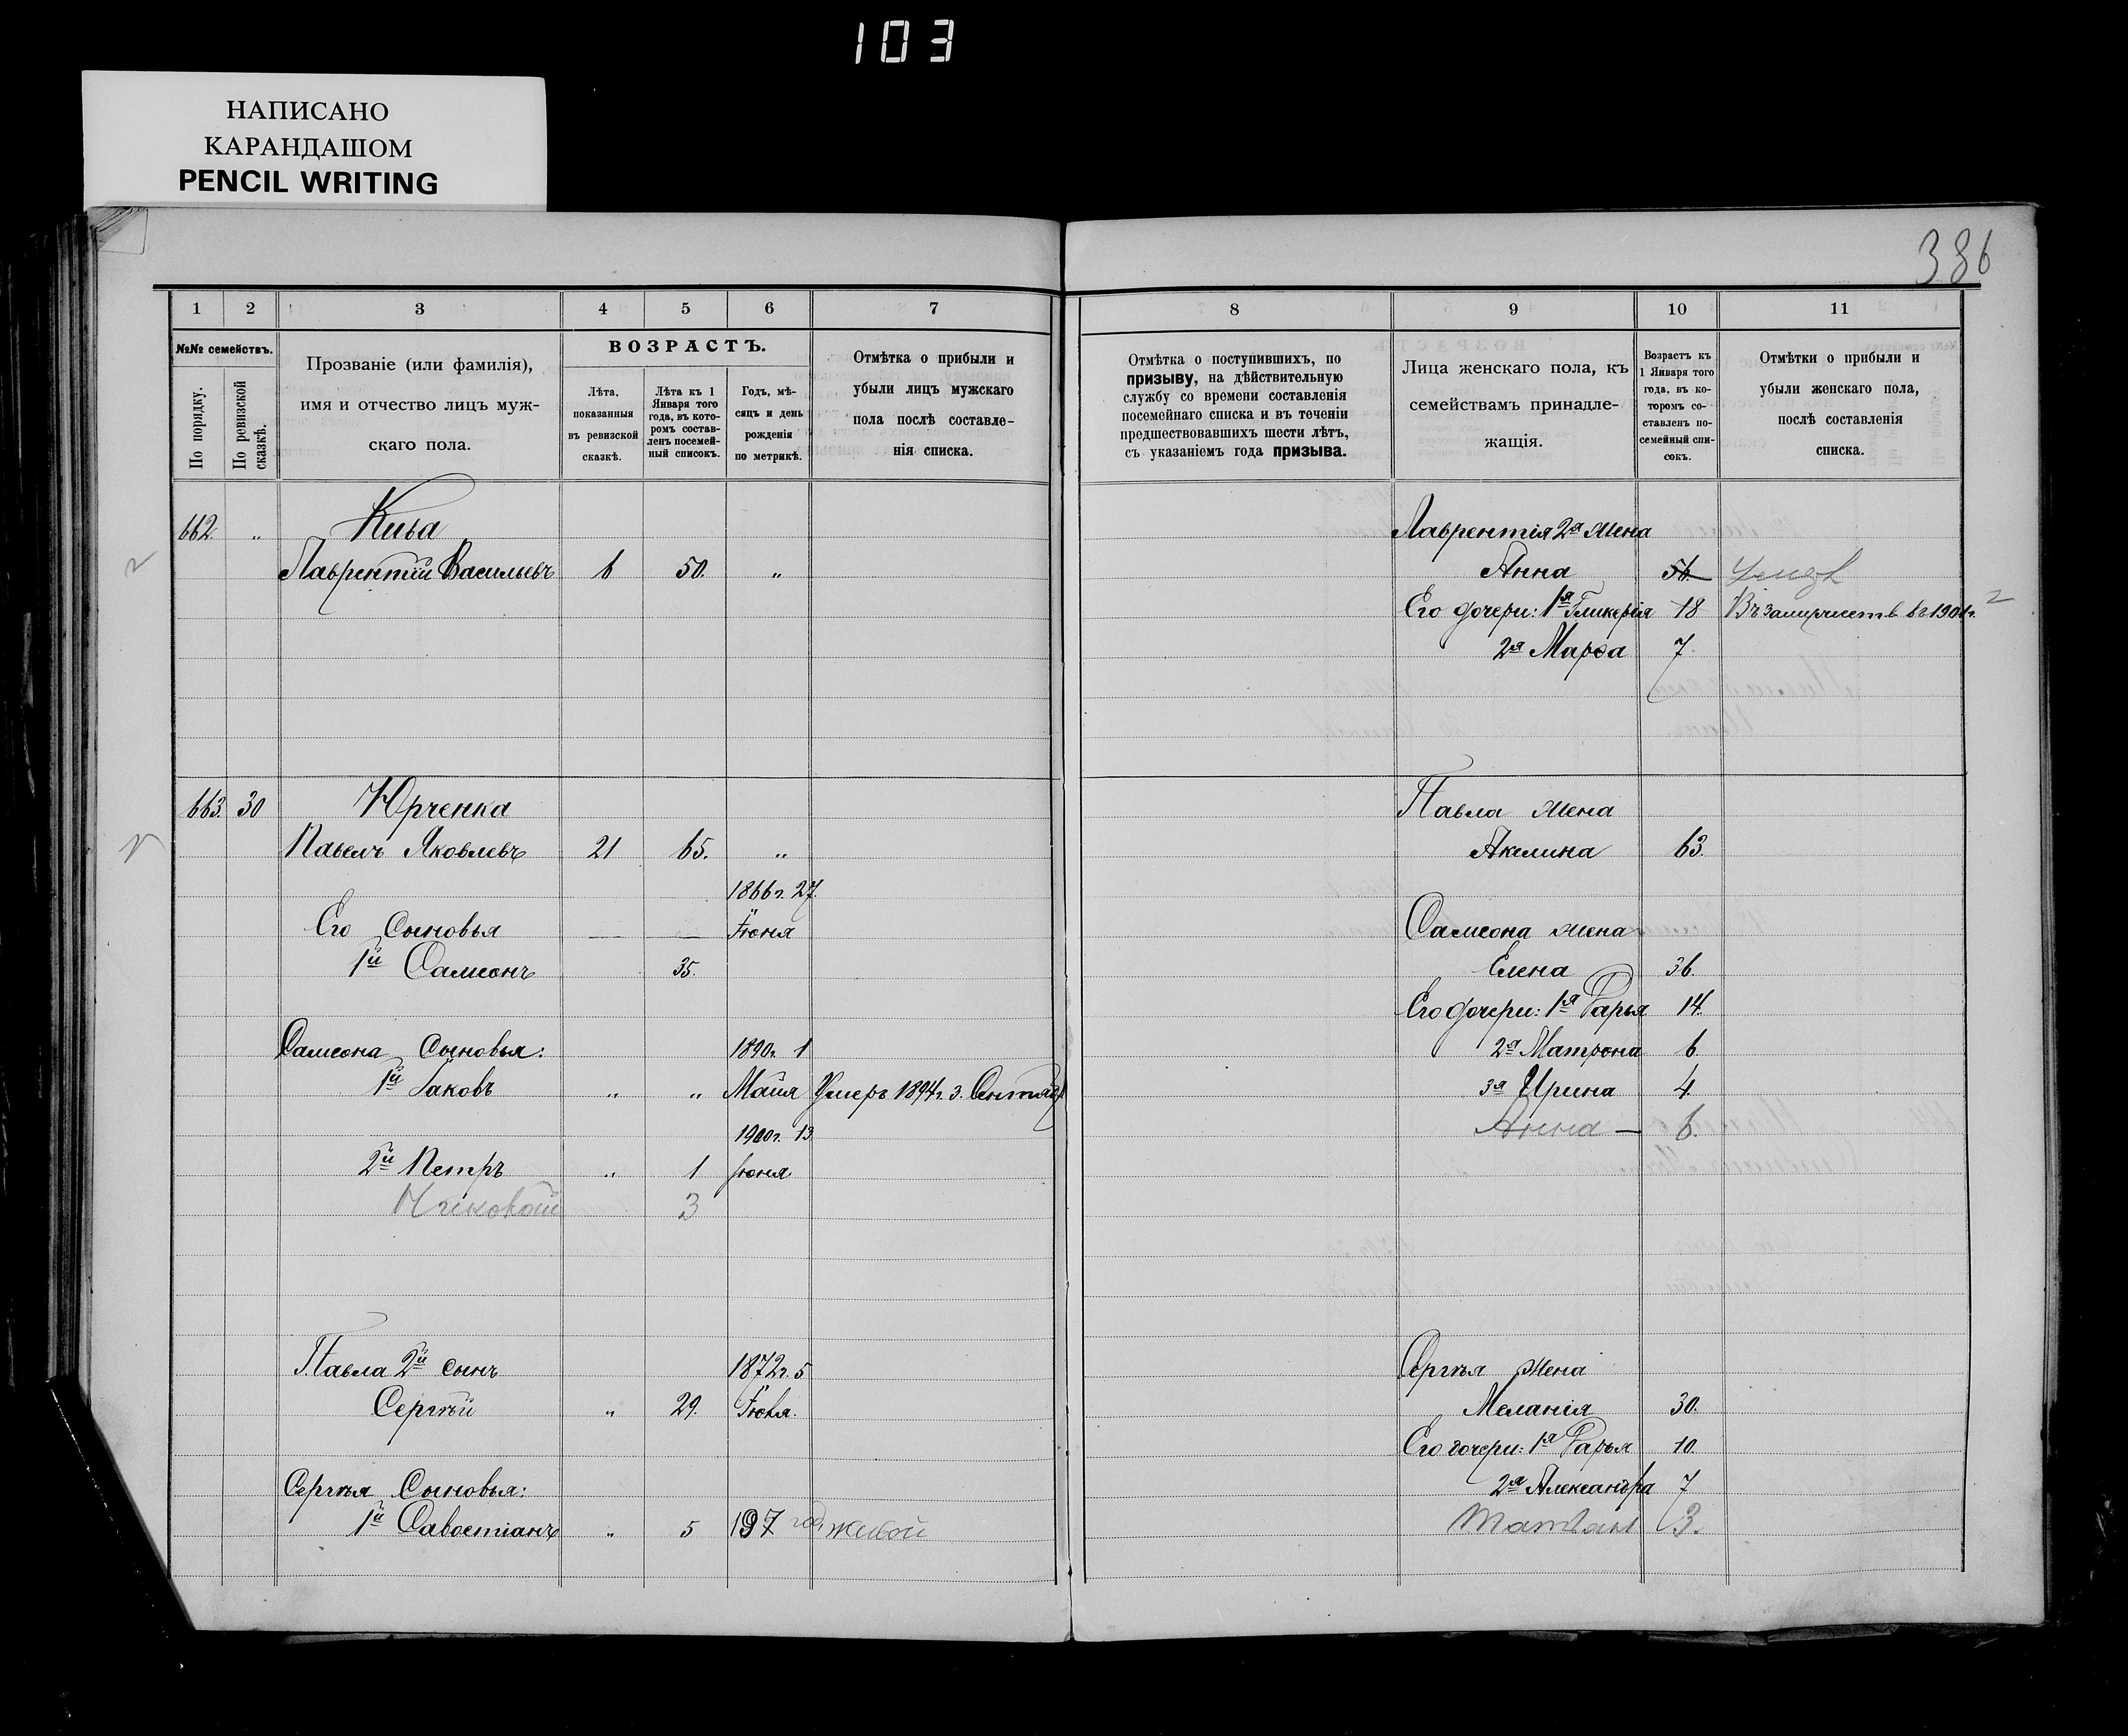 103
НАПИСАНО
КАРАНДАШОМ
PENCIL WRITING
386
1 2 3 4 5 6 7
№№ семействъ.
По порядку.
По ревизской сказкѣ.
Прозваніе (или фамилія),
имя и отчество лицъ муж-
скаго пола.
ВОЗРАСТЪ.
Лѣта,
показанныя
въ ревизской
сказкѣ.
Лѣта къ 1
Января того
года, въ кото-
ромъ состав-
ленъ посемей-
ный списокъ.
Годъ, мѣ-
сяцъ и день
рожденія
по метрикѣ.
Отмѣтка о прибыли и
убыли лицъ мужскаго
пола послѣ составле-
нія списка.
662. „ Кива
Лаврентій Васильевъ 6 50. „
663. 30 Юрченка
Павелъ Яковлевъ 21 65. „
1866 г. 27.
Его Сыновья — — Іюня
1й Самсонъ 35.
Самсона Сыновья: 1890г. 1
1й Іаковъ „ „ Майя Умеръ 1894г. 3. Сентябр
1900г. 13
2й Петръ „ 1 Іюня
3
Павла 2й сынъ 1872г. 5
Сергѣй „ 29. Іюля.
Сергѣя Сыновья:
1й Савостіанъ „ 5 197 год живой
8 9 10 11
Отмѣтка о поступившихъ, по
призыву, на дѣйствительную
службу со времени составленія
посемейнаго списка и въ теченіи
предшествовавшихъ шести лѣтъ,
съ указаніемъ года призыва.
Лица женскаго пола, къ
семействамъ принадле-
жащія.
Возрастъ къ
1 Января того
года, въ ко-
торомъ со-
ставленъ по-
семейный спи-
сокъ.
Отмѣтки о прибыли и
убыли женскаго пола,
послѣ составленія
списка.
Лаврентія 2я жена
Анна 56.
Его дочери: 1я Гликерія 18 Въ 1901г.
2я Марѳа 7.
Павла жена
Акилина 63.
Самсона жена
Елена 36.
Его дочери: 1я Дарья 14.
2я Матрона 6
3я Ирина 4.
Анна — 6.
Сергѣя жена
Меланія 30.
Его дочери: 1я Дарья 10.
2я Александра 7
3.